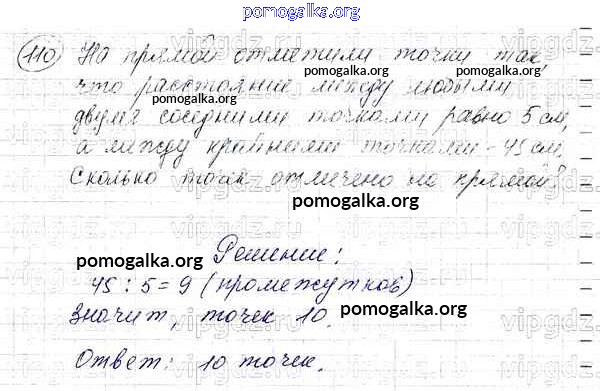 pomogalka.org
110 На прямой отметили точки так,
что расстояние между любыми
pomogalka.org pomogalka.org
двумя соседними точками равно 5 см,
а между крайними точками - 45 см.
Сколько точек отмечено на прямой?
pomogalka.org
Решение:
pomogalka.org
45 : 5 = 9 (промежутков)
pomogalka.org
Значит, точек 10.
Ответ: 10 точек.
pomogalka.org